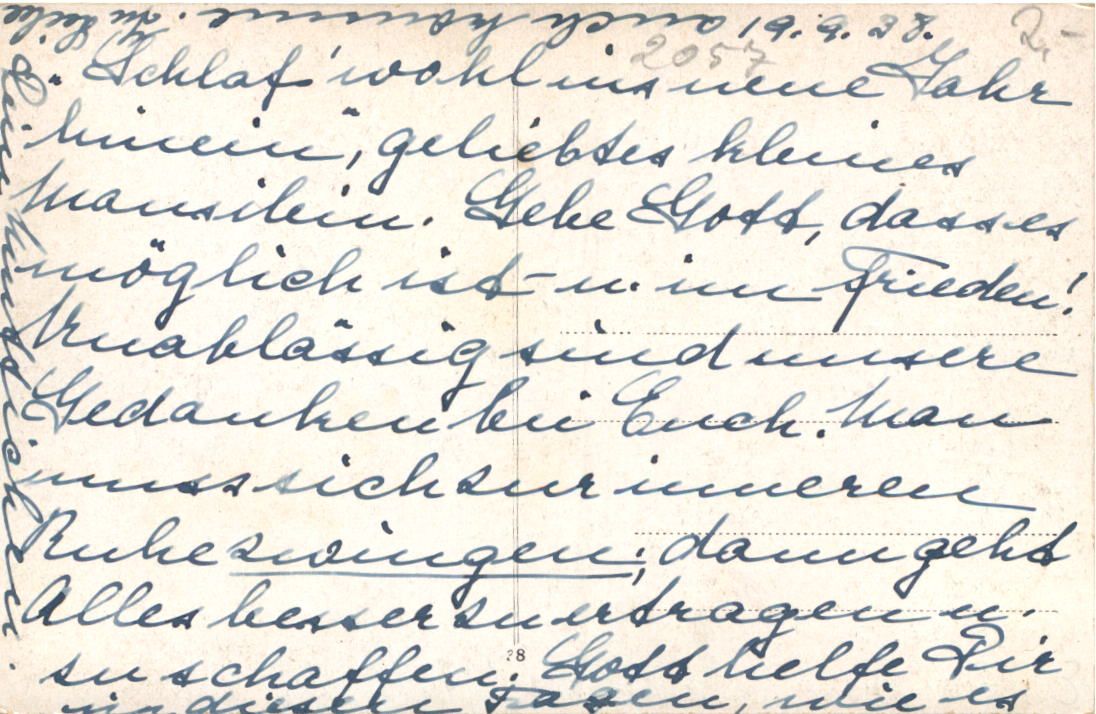 19.9.38.
2.-
2057
"Schlaf' wohl ins neue Jahr
hinein", geliebtes kleines
Mausilein. Gebe Gott, dass es
möglich ist – u. im Frieden!
Unablässig sind unsere
Gedanken bei Euch. Man
muss sich zur inneren
Ruhe zwingen; dann geht
Alles besser zu ertragen u.
zu schaffen. Gott helfe Dir
38
in diesen Tagen, wie es
auch komme. In Liebe
Dein Muttichen.